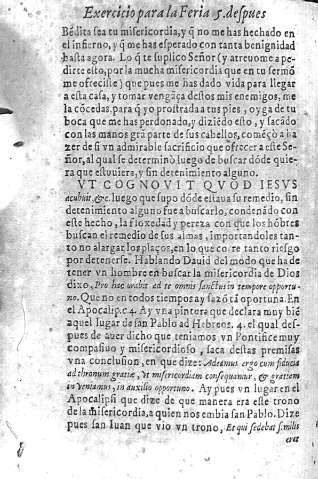 Exercicio para la Feria 5. despues
Bēdita sea tu misericordia, y q̃ no me has hechado en
el infierno, y q̃ me has esperado con tanta benignidad
hasta agora. Lo q̃ te suplico Señor (y atreuome a pe-
dirte esto, por la mucha misericordia que en tu sermõ
me ofreciste) que pues me has dado vida para llegar
a esta casa, y tomar vengãça destos mis enemigos, me
la cõcedas, para q̃ yo postrada a tus pies, oyga de tu
boca que me has perdonado, y diziẽdo esto, y sacãdo
con las manos grã parte de sus cabellos, comẽço a ha
zer de si vn admirable sacrificio que ofrecer a este Se-
ñor, al qual se determinò luego de buscar dõde quie-
ra que estuuiera, y sin detenimiento alguno.
VT COGNOVIT QVOD IESVS
acubuit &c. luego que supo dõde estaua su remedio, sin
detenimiento alguno fue a buscarlo, condenãdo con
este hecho, la floxedad y pereza con que los hõbres
buscan el remedio de sus almas, importandoles tan-
to no alargar los plaços, en lo que corre tanto riesgo
por detenerse. Hablando Dauid del modo que ha de
tener vn hombre en buscar la misericordia de Dios
dixo, Pro hac orabit ad te omnis sanctus in tempore opportu-
no. Que no en todos tiempos ay sazõ tã oportuna. En
el Apocalip. c. 4. Ay vna pintura que declara muy biē
aquel lugar de san Pablo ad Hebreos. 4. el qual des-
pues de auer dicho que teniamos vn Pontifice muy
compasiuo y misericordioso, saca destas premisas
vna conclusion, en que dize: Adeamus ergo cum fiducia
ad thronum gratiæ, vt misericordiam consequamur, & gratiam
inueniamus, in auxilio opportuno. Ay pues vn lugar en el
Apocalipsi que dize de que manera era este trono
de la misericordia, a quien nos embia san Pablo. Dize
pues san Iuan que vio vn trono, Et qui sedebat similis
erat